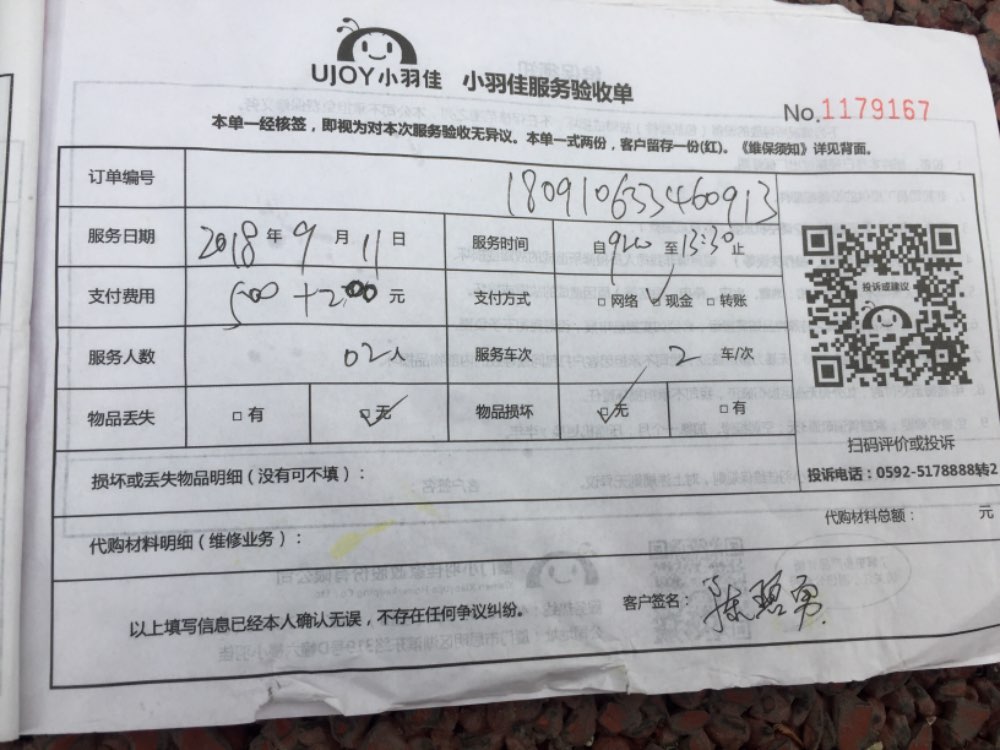 UJOY小羽佳 小羽佳服务验收单
No.1179167
本单一经核签，即视为对本次服务验收无异议。本单一式两份，客户留存一份(红)。《维保须知》详见背面。
订单编号 180910633460913
服务日期 2018年9月11日 服务时间 自920至13:30止
支付费用 500+200元 支付方式 □网络 ☑现金 □转账
投诉或建议
服务人数 02人 服务车次 2 车/次
物品丢失 □有 ☑无 物品损坏 ☑无 □有
扫码评价或投诉
损坏或丢失物品明细(没有可不填)：
投诉电话：0592-5178888转2
代购材料总额： 元
代购材料明细(维修业务)：
客户签名：陈碧勇
以上填写信息已经本人确认无误，不存在任何争议纠纷。